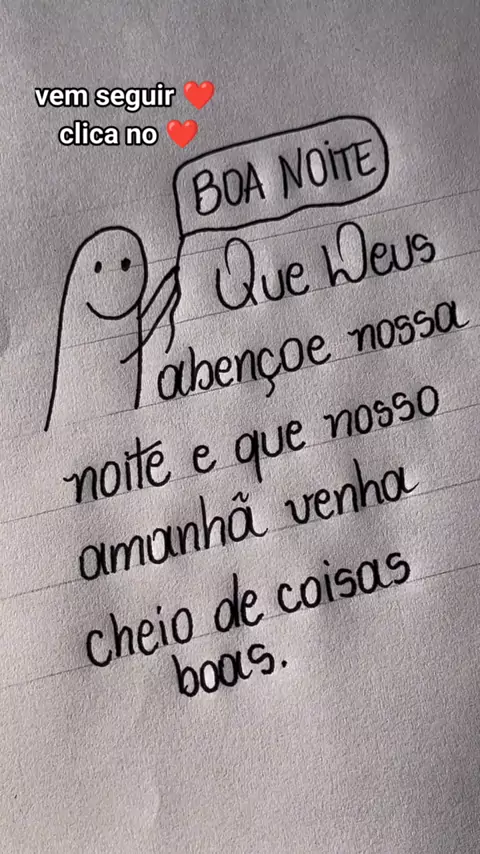 vem seguir ❤️
clica no ❤️
BOA NOITE
Que Deus
abençoe nossa
noite e que nosso
amanhã venha
cheio de coisas
boas.